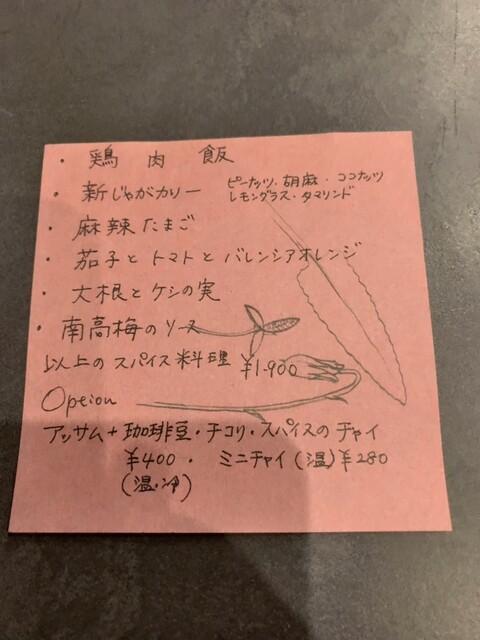 ・ 鶏肉飯
・ 新じゃがカリー ピーナッツ・胡麻・ココナッツ
レモングラス・タマリンド
・ 麻辣たまご
・ 茄子とトマトとバレンシアオレンジ
・ 大根とケシの実
・ 南高梅のソース
以上のスパイス料理 ¥1.900
Option
アッサム+珈琲豆・チコリ・スパイスのチャイ
¥400・ ミニチャイ(温)¥280
(温・冷)